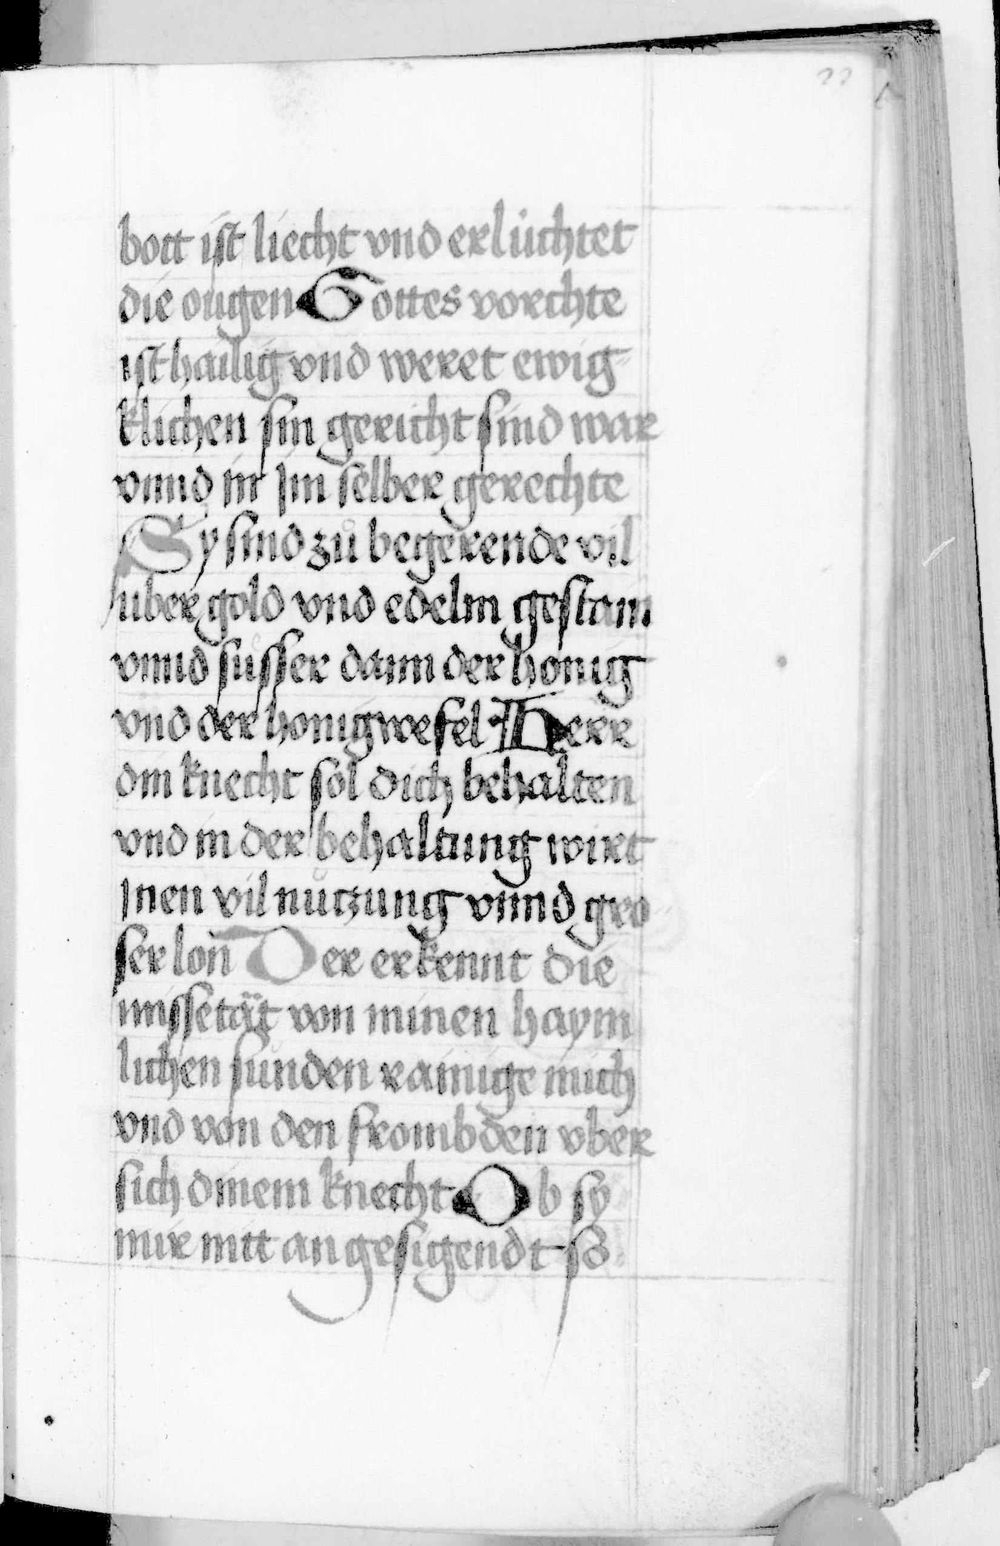 22
bott ist liecht vnd erlüchtet
die ougen Gottes vorchte
ist hailig vnd weret ewig
klichen sin gericht sind war
vnnd in Jm selber gerechte
Sy sind zů begerende vil
uber gold vnd edelm gestain
vnnd sůsser dann der honig
vnd der honigwesel Herr
din knecht sol dich behalten
vnd in der behaltung wirt
Jnen vil nützung vnnd gro
ser lon Der erkennt die
missetät von minen haym
lichen sünden rainige mich
vnd von den frombden vber
sich dinem knecht Ob sy
mir nitt an gesigendt so